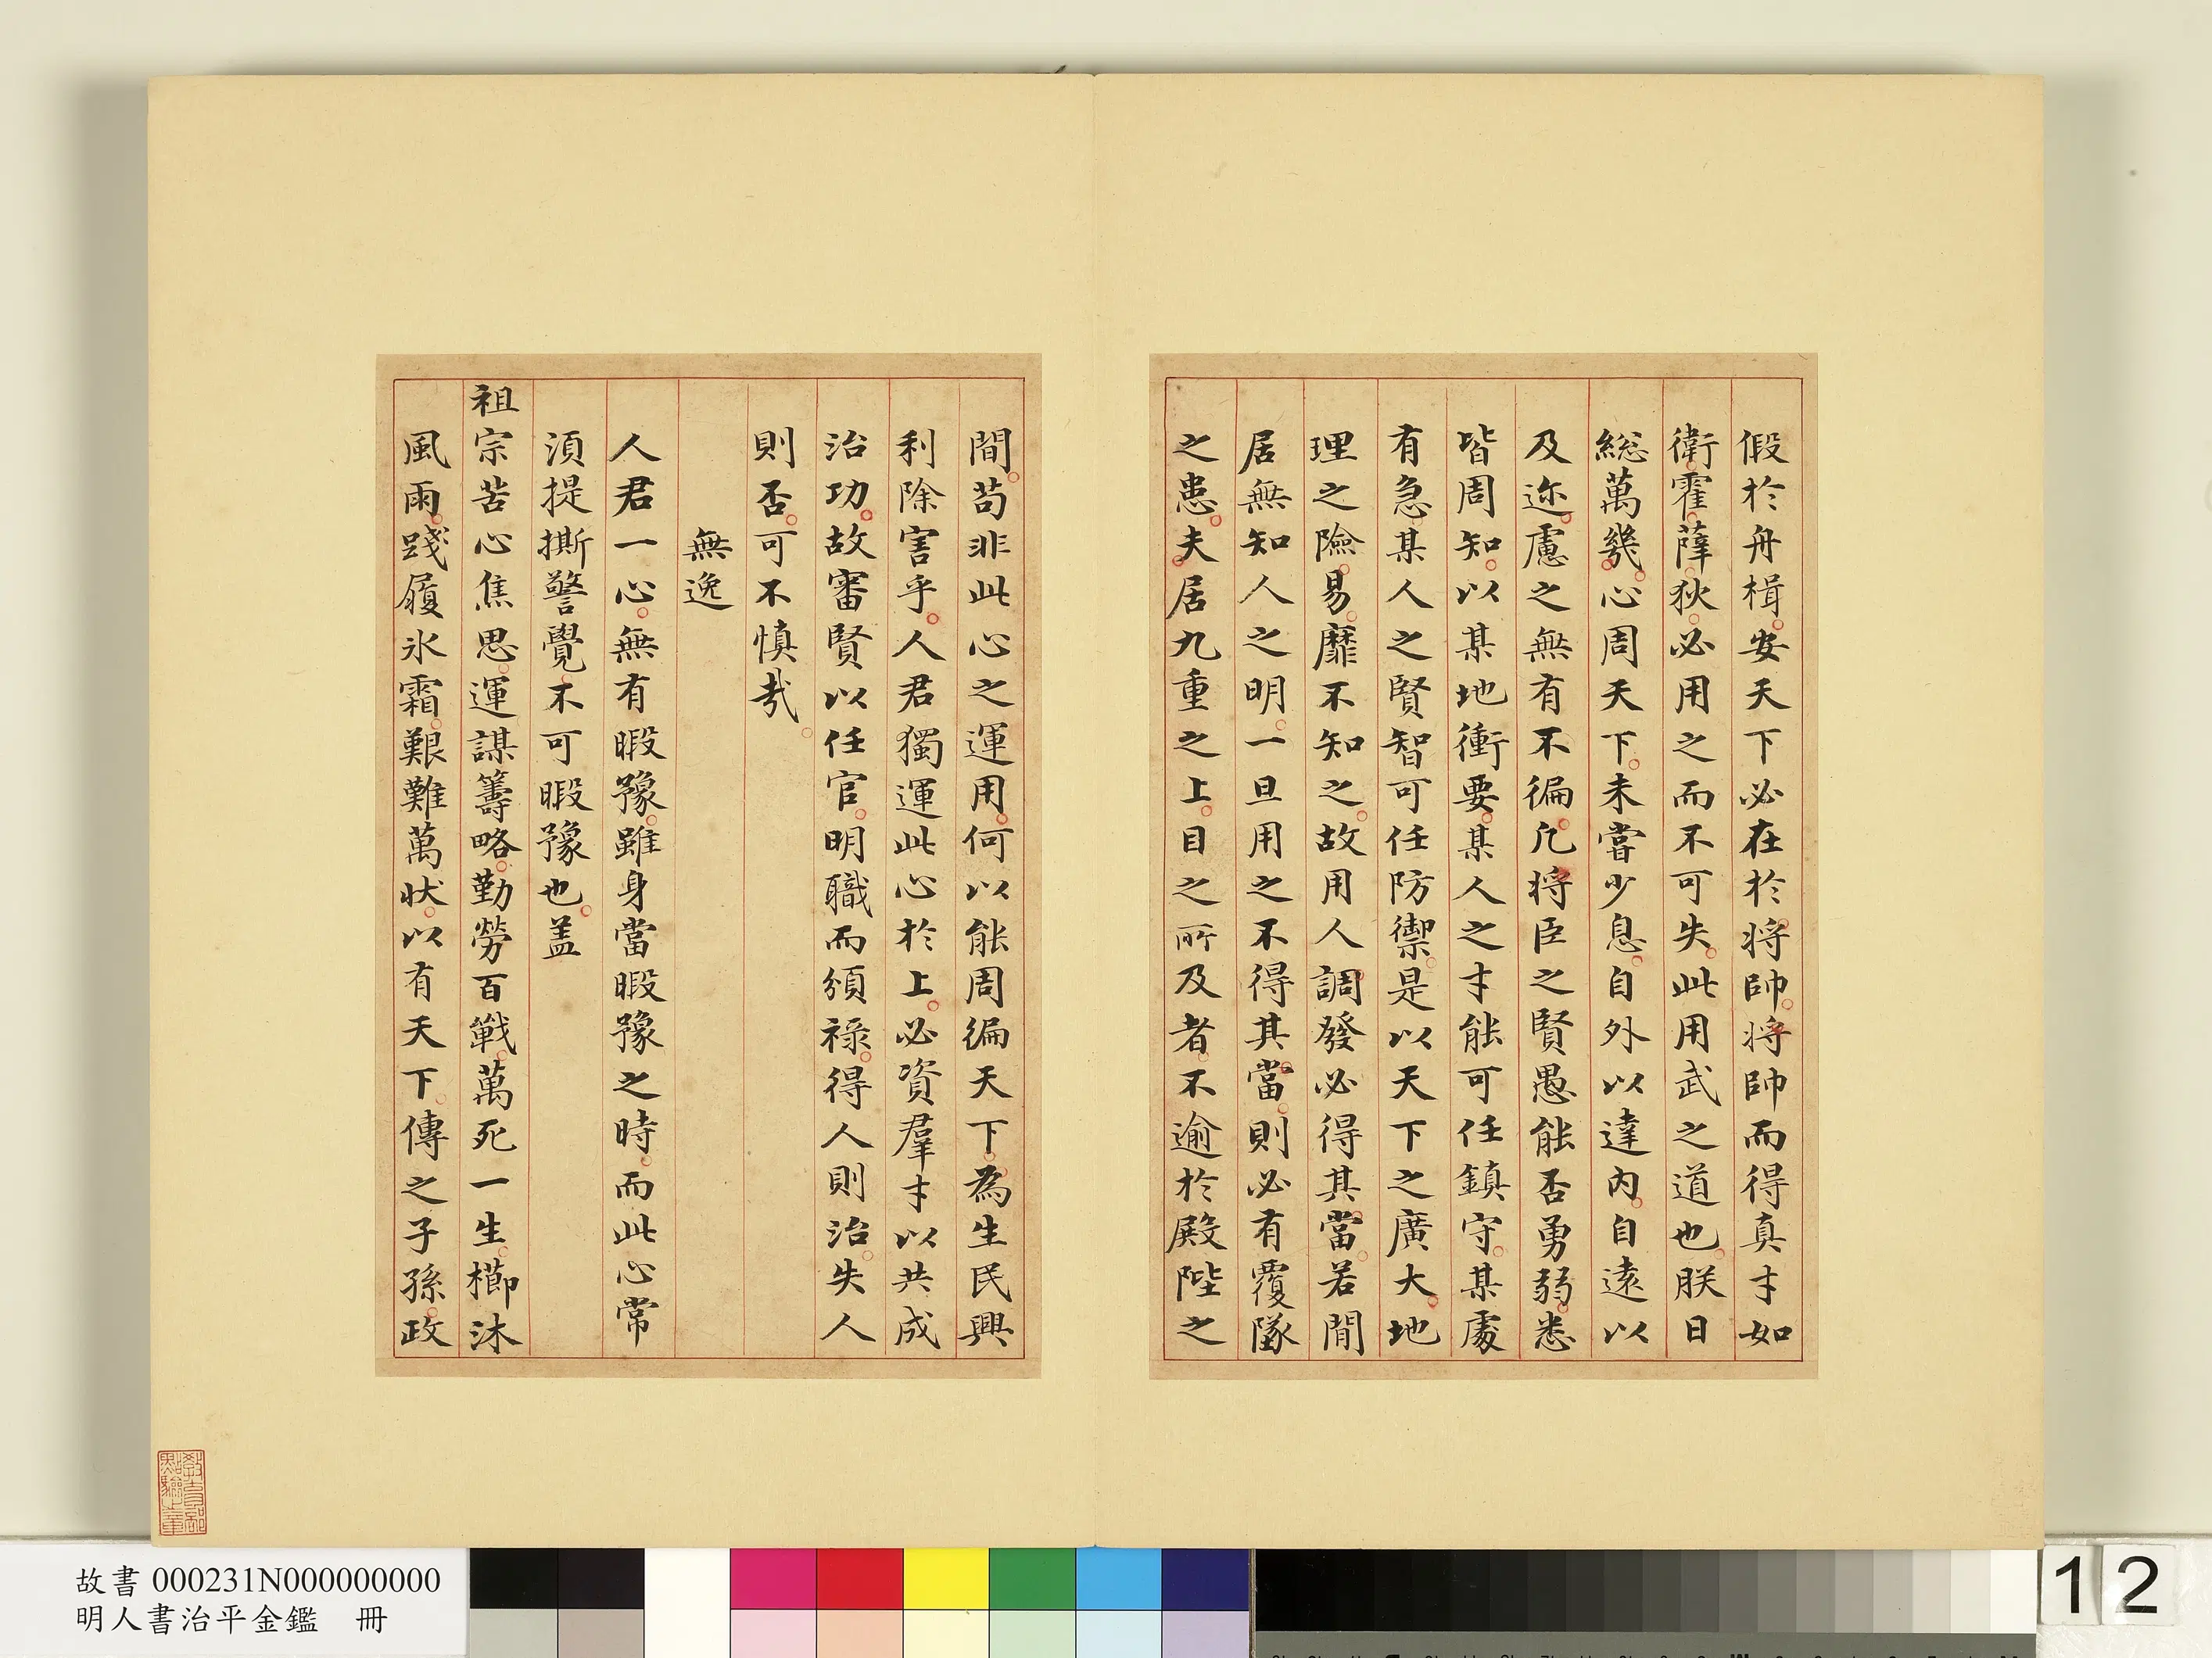 假於舟楫安天下必在於將帥將帥而得真才如
衛霍薛狄必用之而不可失此用武之道也朕日
総萬幾心周天下未嘗少息自外以達內自遠以
及迩慮之無有不徧凡將臣之賢愚能否勇弱悉
皆周知以某地衝要某人之才能可任鎮守某處
有急某人之賢智可任防禦是以天下之廣大地
理之險易靡不知之故用人調發必得其當若閒
居無知人之明一旦用之不得其當則必有覆墜
之患夫居九重之上目之所及者不逾於殿陛之
間苟非此心之運用何以能周徧天下為生民興
利除害乎人君獨運此心於上必資羣才以共成
治功故審賢以任官明職而頒祿得人則治失人
則否可不慎哉
無逸
人君一心無有暇豫雖身當暇豫之時而此心常
須提撕警覺不可暇豫也盖
祖宗苦心焦思運謀籌略勤勞百戰萬死一生櫛沐
風雨踐履氷霜艱難萬狀以有天下傳之子孫政
故書 000231N000000000
明人書治平金鑑 冊
12